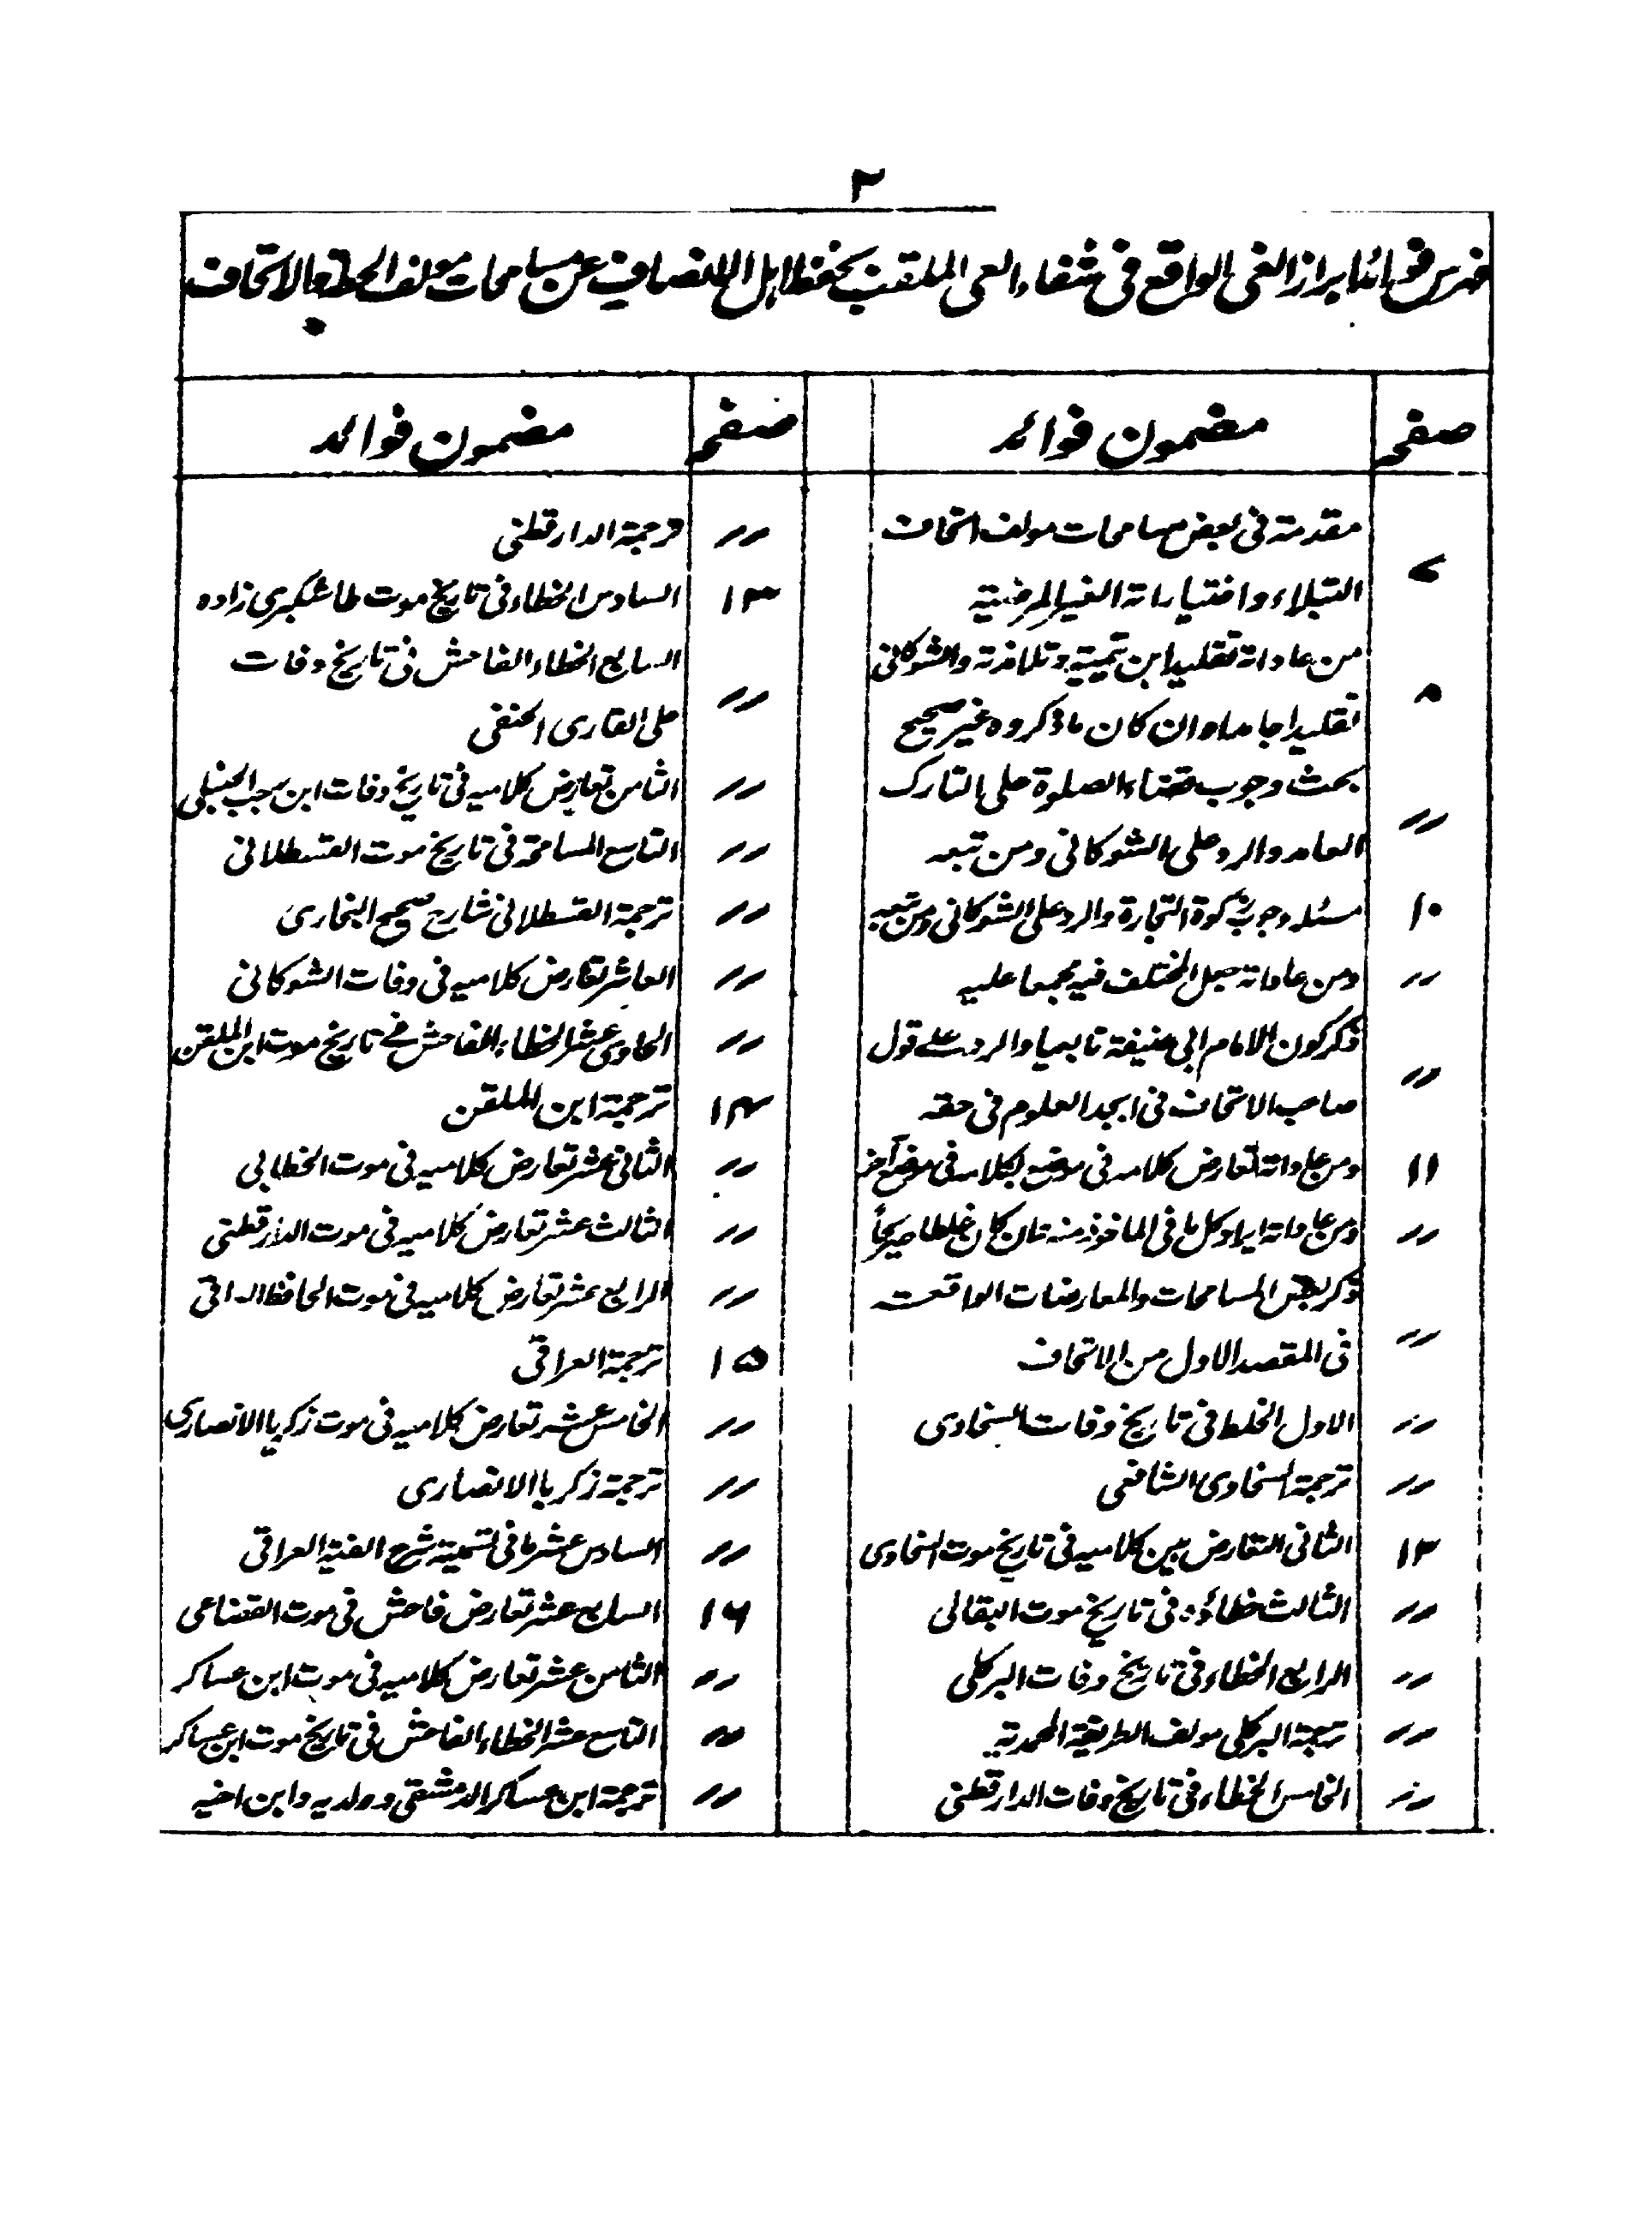 ٢
فهرس فوائد ابراز الغى الواقع فى شفاء العى الملقب بحفظ اهل الانصاف عن مسامحات مولف الحطة والاتحاف
صفحہ مضمون فوائد
مقدمة فى بعض مسامحات مولف اتحاف
٧ النبلاء واختياراته الغير المرضية
من عاداته تقليد ابن تيمية وتلامذته والشوكانى
٨ تقليدا جامدا وان كان ماذكروه غير صحيح
بحث وجوب قضاء الصلوة على التارك
〃 العامد والرد على الشوكانى ومن تبعه
١٠ مسئله وجوب زكوة التجارة والرد على الشوكانى ومن تبعه
〃 ومن عاداته جعل المختلف فيه مجمعا عليه
ذكر كون الامام ابى حنيفة تابعيا والرد على قول
〃 صاحب الاتحاف فى ابجد العلوم فى حقه
١١ ومن عاداته تعارض كلامه فى موضع لكلامه فى موضع آخر
〃 ومن عاداته ايراد كل ما فى الماخوذ منه وان كان غلطا صريحاً
ذكر بعض المسامحات والمعارضات الواقعة
〃 فى المقصد الاول من الاتحاف
〃 الاول الخلط فى تاريخ وفات السخاوى
〃 ترجمة السخاوى الشافعى
١٢ الثانى التعارض بين كلاميه فى تاريخ موت السخاوى
〃 الثالث خطاؤه فى تاريخ موت البقالى
〃 الرابع الخطاء فى تاريخ وفات البركلى
〃 ترجمة البركلى مولف الطريقة المحمدية
〃 الخامس الخطاء فى تاريخ وفات الدارقطنى
صفحہ مضمون فوائد
〃 ترجمة الدارقطنى
١٣ السادس الخطاء فى تاريخ موت طاشكبرى زاده
السابع الخطاء الفاحش فى تاريخ وفات
〃 على القارى الحنفى
〃 الثامن تعارض كلاميه فى تاريخ وفات ابن رجب الحنبلى
〃 التاسع المسامحة فى تاريخ موت القسطلانى
〃 ترجمة القسطلانى شارح صحيح البخارى
〃 العاشر تعارض كلاميه فى وفات الشوكانى
〃 الحادى عشر الخطاء الفاحش فى تاريخ موت ابن الملقن
١٤ ترجمة ابن الملقن
〃 الثانى عشر تعارض كلاميه فى موت الخطابى
〃 الثالث عشر تعارض كلاميه فى موت الدارقطنى
〃 الرابع عشر تعارض كلاميه فى موت الحافظ العراقى
١٥ ترجمة العراقى
〃 الخامس عشر تعارض كلاميه فى موت زكريا الانصارى
〃 ترجمة زكريا الانصارى
〃 السادس عشر ما فى تسمية شرح الفية العراقى
١٦ السابع عشر تعارض فاحش فى موت القضاعى
〃 الثامن عشر تعارض كلاميه فى موت ابن عساكر
〃 التاسع عشر الخطاء الفاحش فى تاريخ موت ابن عساكر
〃 ترجمة ابن عساكر الدمشقى وولديه وابن اخيه